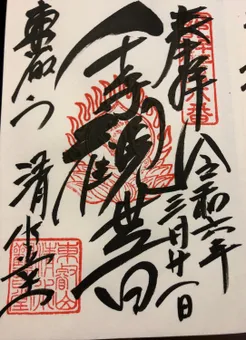 奉拝
令和六年
三月廿一日
千手観世音
東叡山
清水堂